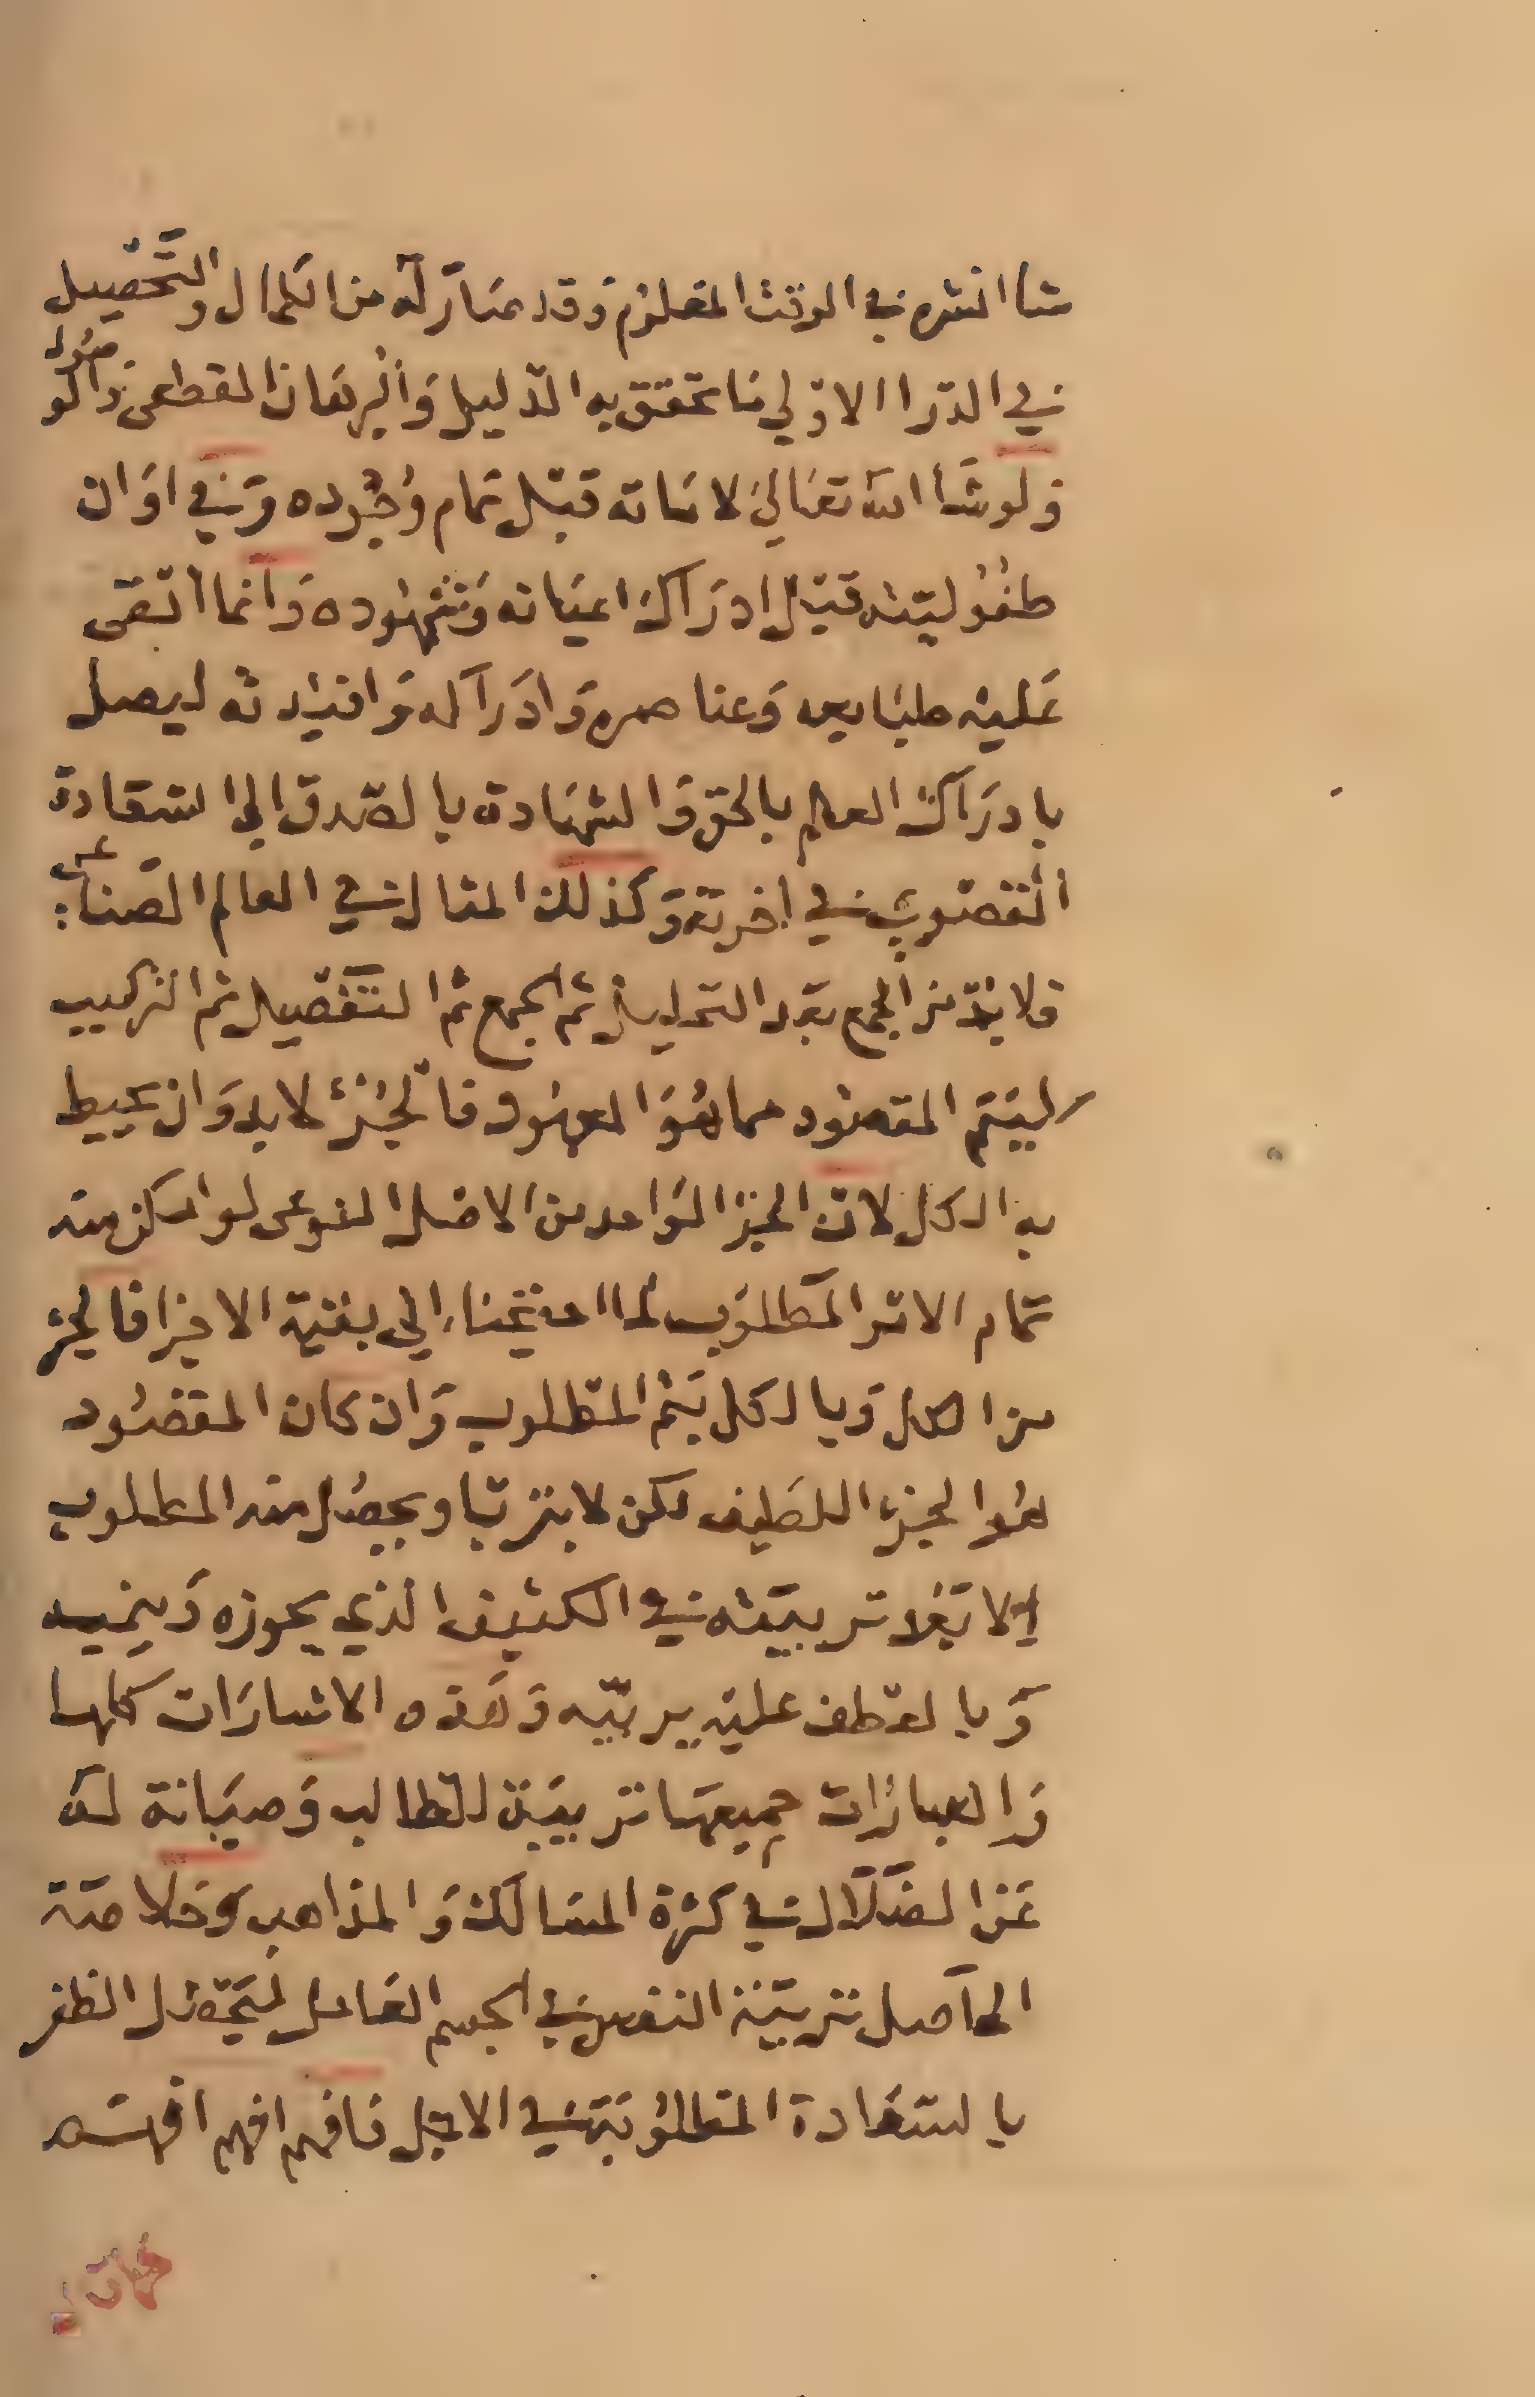 شا انشره في الوقت المعلوم وقد صار له من الكمال والتحصيل
في الدرا الاولي ما تحقق به الدليل والبرهان القطعي والوصول
ولو شا الله تعالي لاماته قبل تمام وجوده وفي اوان
طفوليته قبل ادراك اعيانه وشهوده وانما ابقى
عليه طبايعه وعناصره وادراكه وافيدته ليصل
بادراك العالم بالحق والشهادة بالصدق الي السعادة
القصوي في اخرته وكذلك المثال في العالم الصناعي
فلا بد من الجمع بعد التحليل ثم الجمع ثم التفصيل ثم التركيب
ليتم المقصود مما هو المعهود فالجزء لا بد وان يحيط
به الكل لان الجزا الواحد من الاصل النوعى لو امكن منه
تمام الاثر المطلوب لما احتجنا الي بقية الاجزا فالجزء
من الكل وبالكل يتم المطلوب وان كان المقصود
هو الجزء اللطيف لكن لا يتربا ويحصل منه المطلوب
الا بعد تربيته في الكثيف الذي يحوزه وينميه
وبالعطف عليه يربيه وهذه الاشارات كلها
والعبارات جميعها تربية للطالب وصيانة له
عن الضلال في كثرة المسالك والمذاهب وخلاصة
الحاصل تربية النفس في الجسم الفاعل ليحصل الظفر
بالسعادة المطلوبة في الاجل فافهم افهم افهم